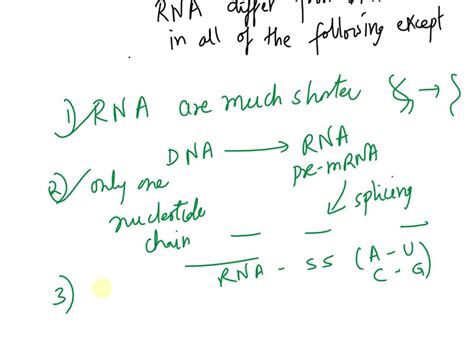 RNA differ from
in all of the following except
1) RNA are much shorter
DNA → RNA
pre-mRNA
2) only one
nucleotide
chain
splicing
RNA - SS (A - U
C - G)
3)